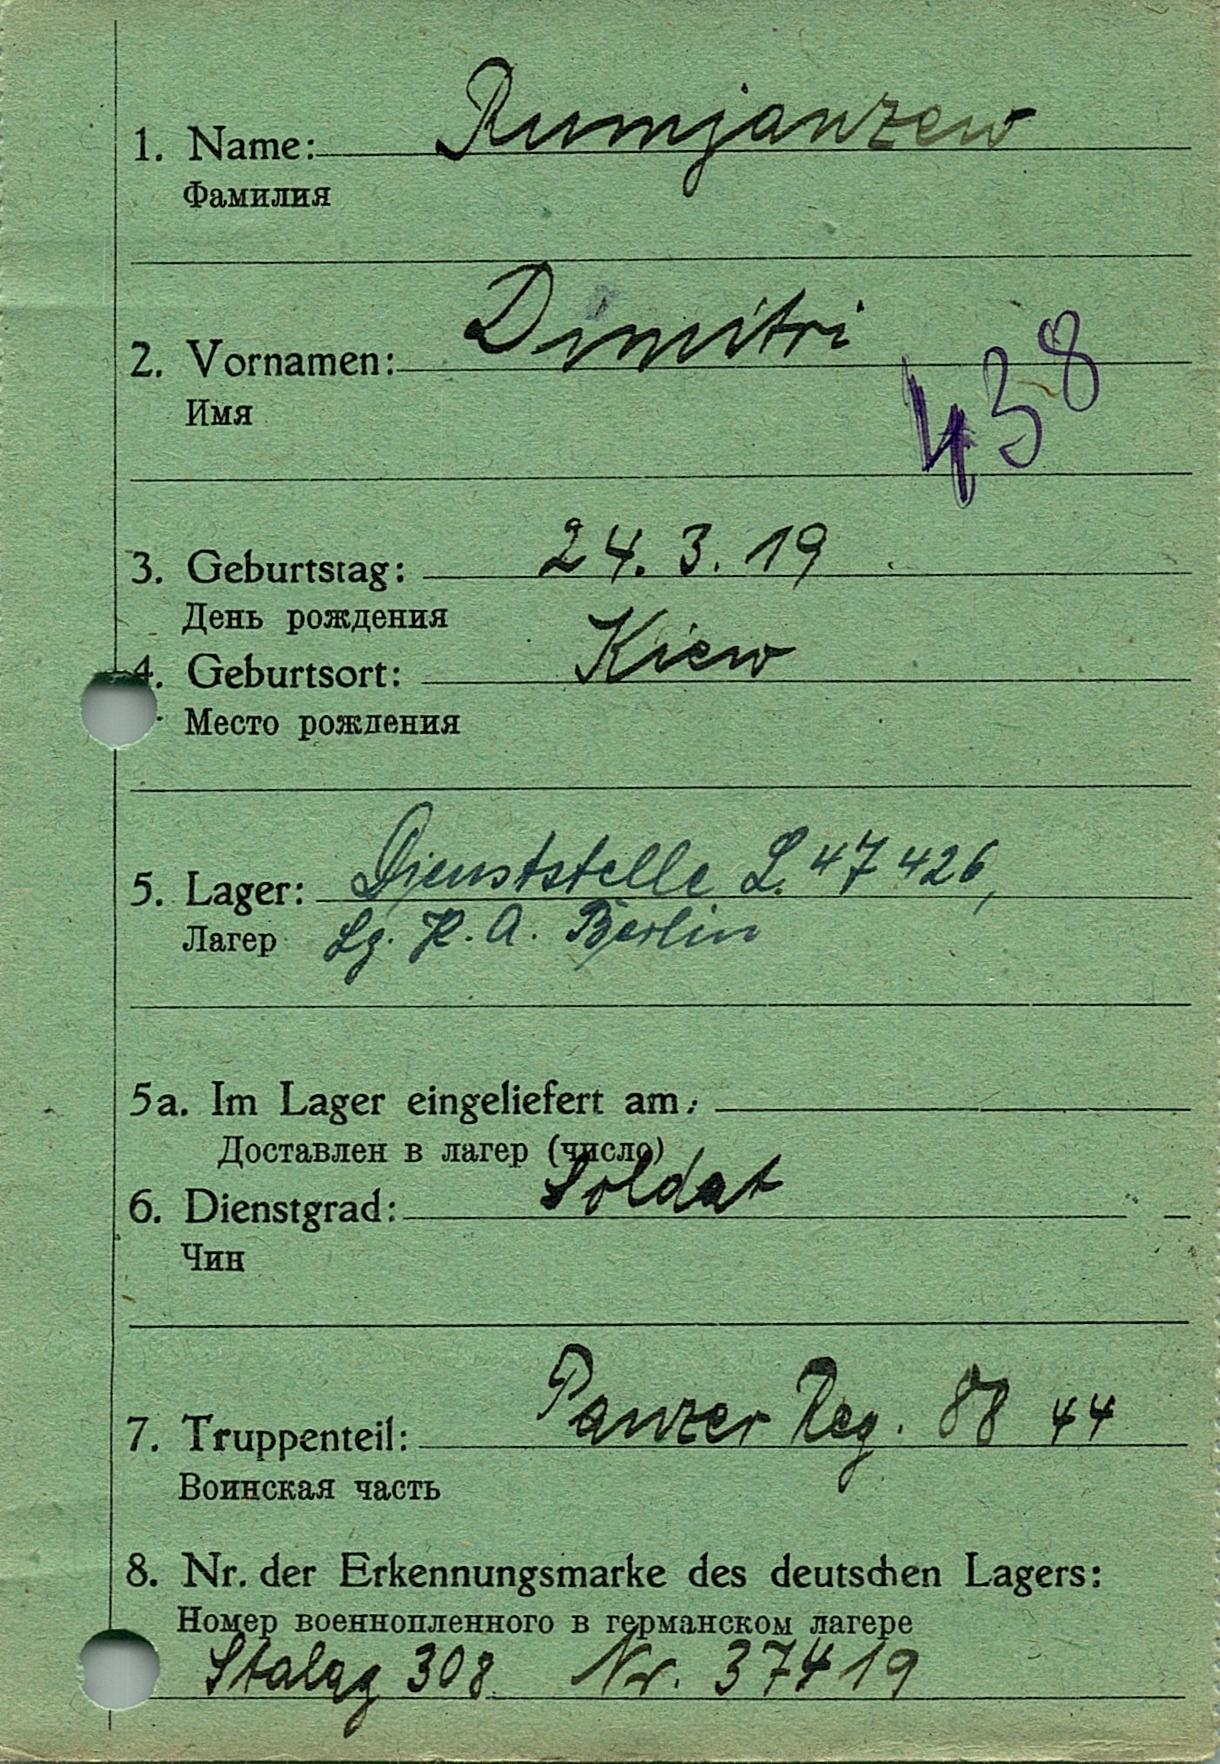 1. Name: Rumjanzew
Фамилия
2. Vornamen: Dimitri
Имя
438
3. Geburtstag: 24. 3. 19
День рождения
4. Geburtsort: Kiew
Место рождения
5. Lager: Dienststelle L. 47 426,
Лагер Lg. P. A. Berlin
5a. Im Lager eingeliefert am:
Доставлен в лагер (число)
6. Dienstgrad: Soldat
Чин
7. Truppenteil: Panzer Reg. 88 44
Воинская часть
8. Nr. der Erkennungsmarke des deutschen Lagers:
Номер военнопленного в германском лагере
Stalag 308 Nr. 37419